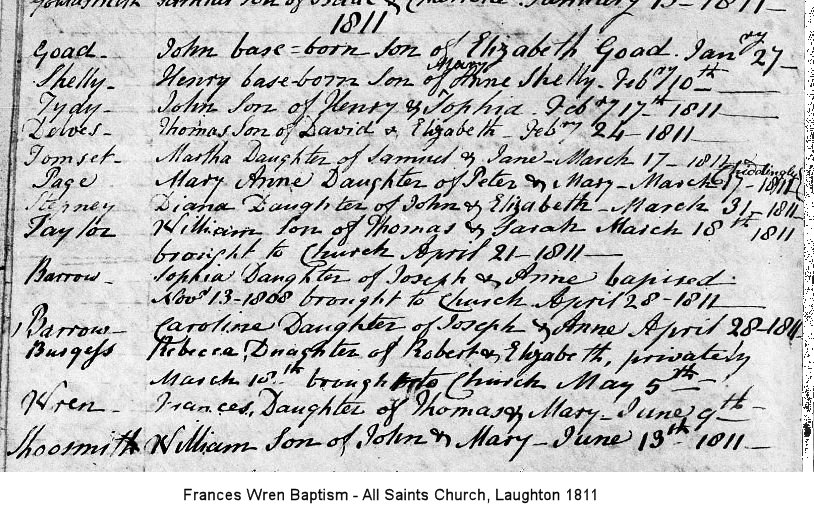 Samuel Son of Isaac & January 13 - 1811
1811
Goad - John base=born Son of Elizabeth Goad. Janry 27 -
Mary
Shelly - Henry base-born Son of Anne Shelly - Febry 10th -
Tydy - John Son of Henry & Sophia - Febry 17th - 1811
Dewes - Thomas Son of David & Elizabeth - Febry 24 - 1811 -
Tomset - Martha Daughter of Samuel & Jane - March 17 - 1811
Chiddingly
Page Mary Anne Daughter of Peter & Mary - March 17 - 1811
Stepney Diana Daughter of John & Elizabeth - March 31 - 1811
Taylor William Son of Thomas & Sarah March 18th 1811
brought to Church April 21 - 1811 -
Barrow - Sophia Daughter of Joseph & Anne bapised
Novr 13 - 1808 brought to Church April 28 - 1811 -
Barrow - Caroline Daughter of Joseph & Anne April 28 - 1811
Burgess Rebecca, Daughter of Robert & Elizabeth, privately
March 18th brought to Church May 5th -
Wren - Frances, Daughter of Thomas & Mary - June 9th -
Shoosmith William Son of John & Mary - June 13th 1811 -
Frances Wren Baptism - All Saints Church, Laughton 1811